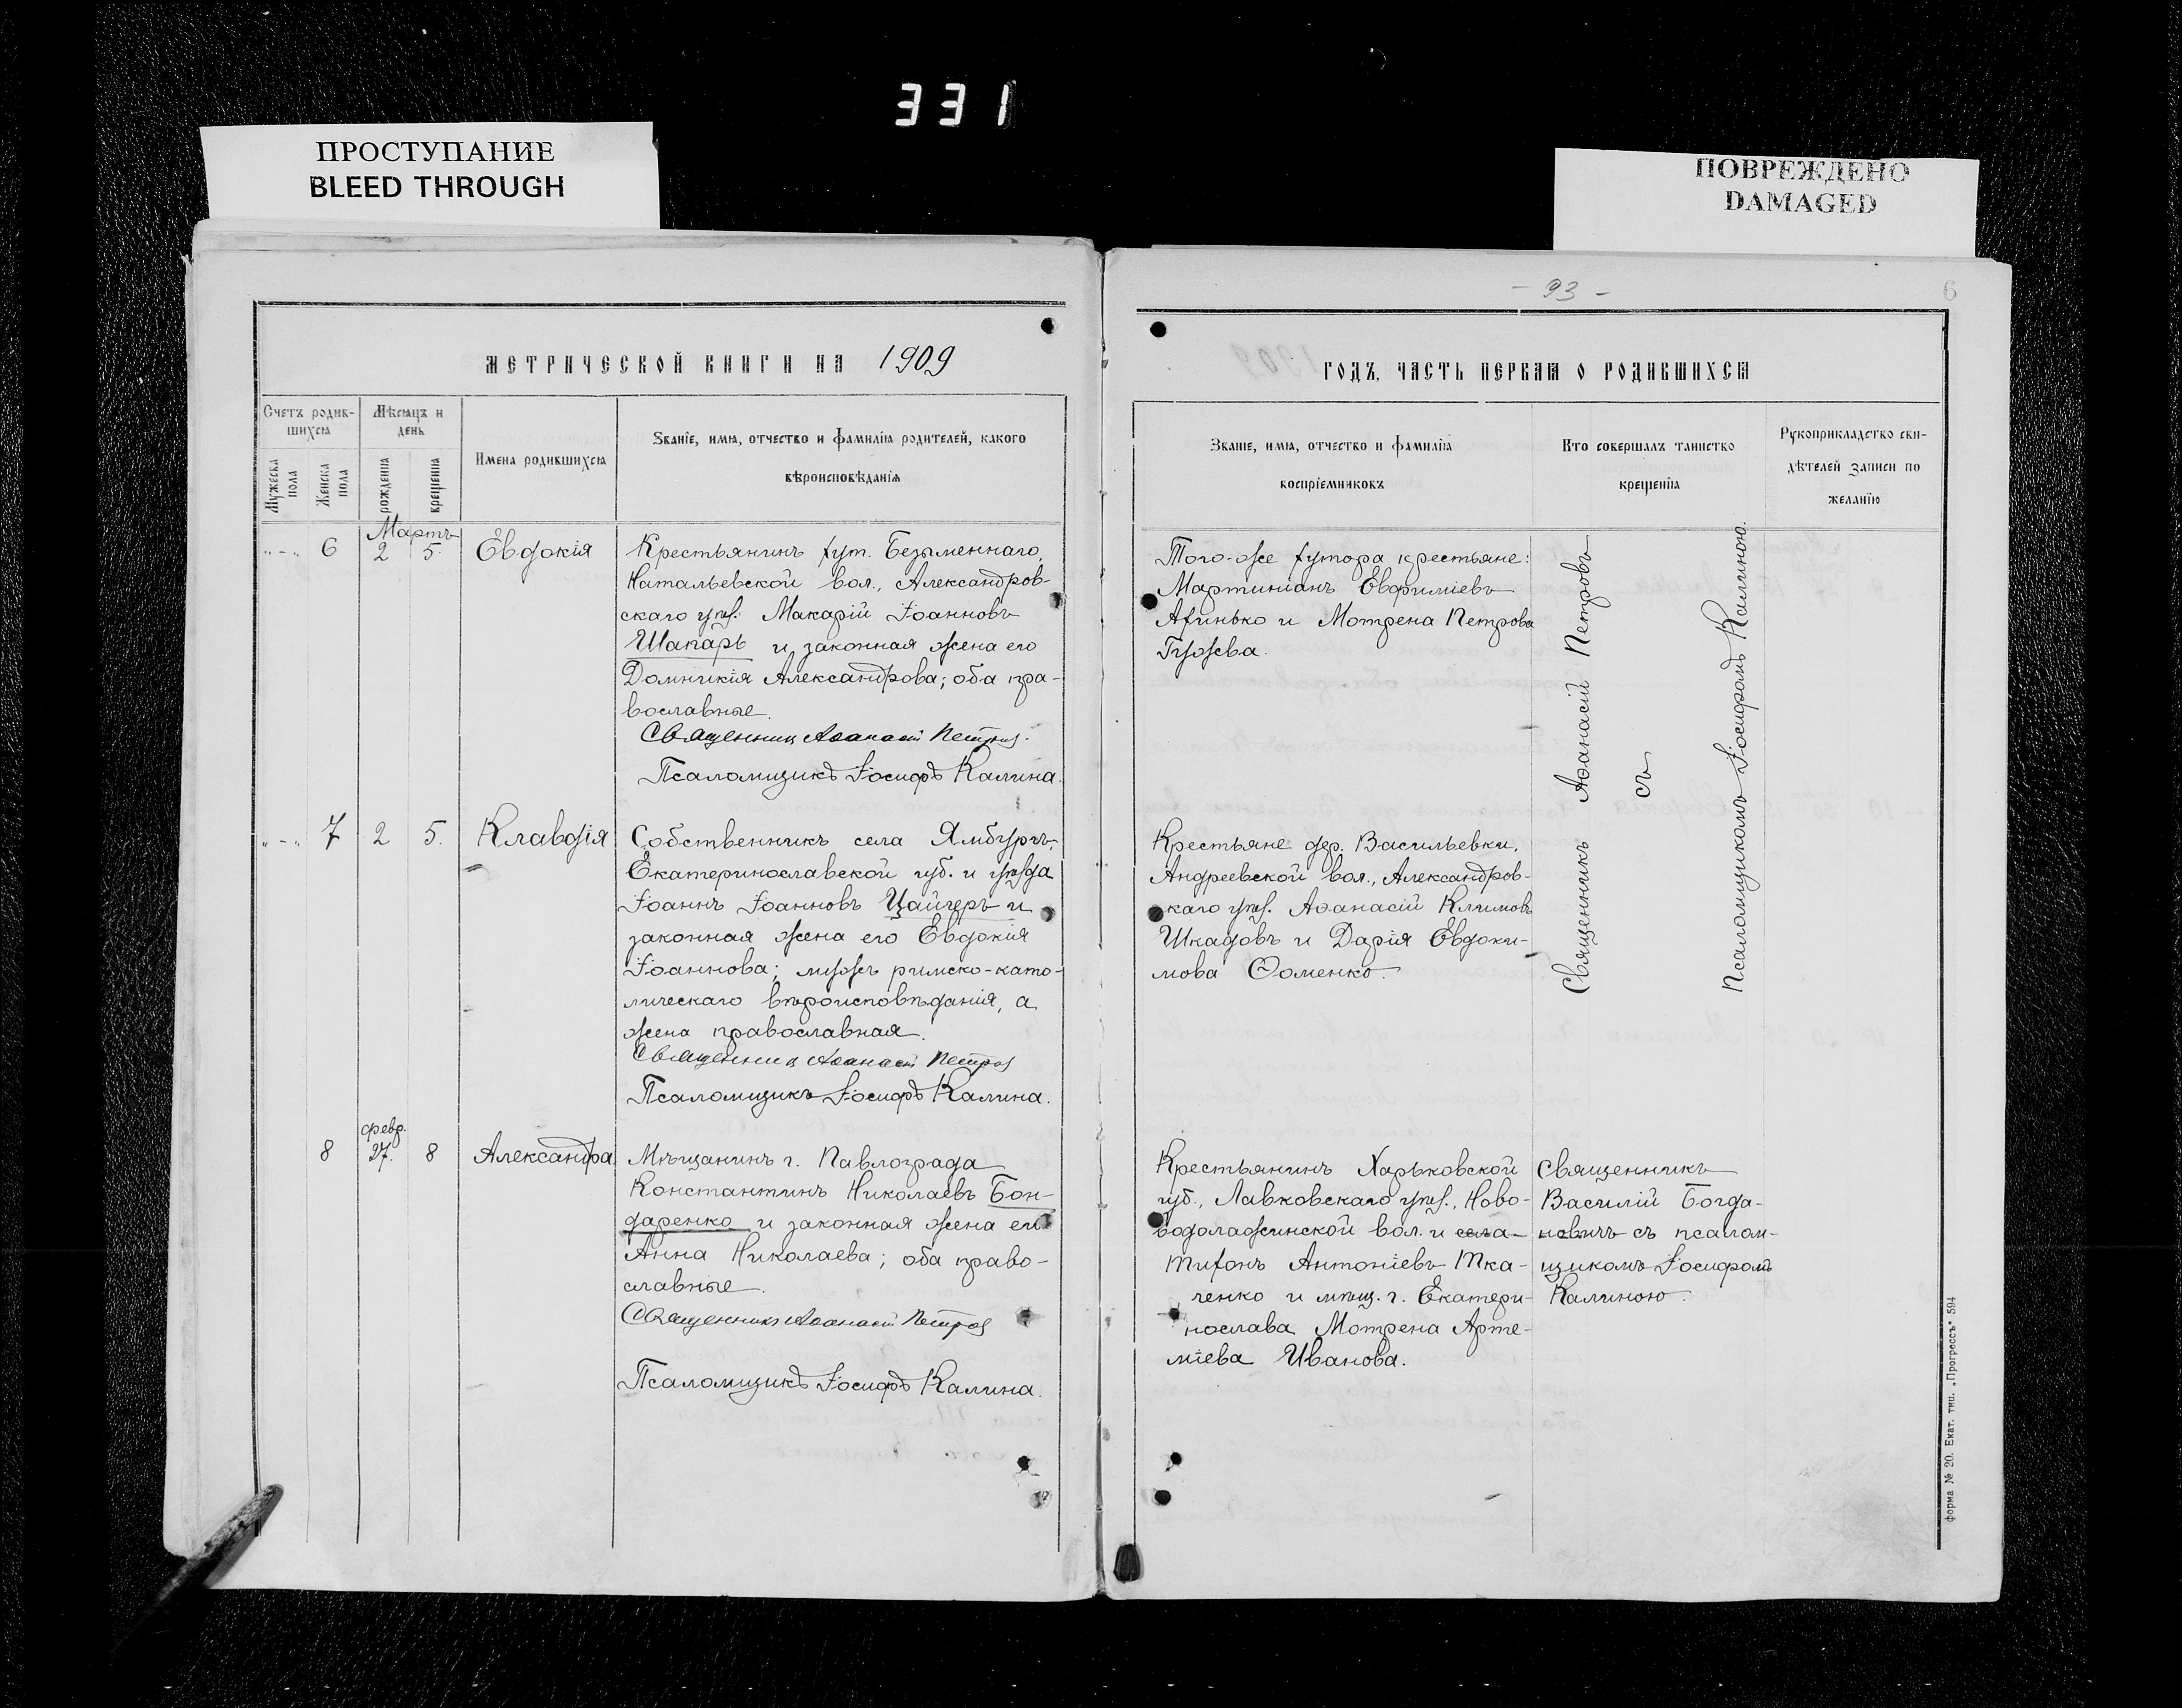 331
ПРОСТУПАНИЕ
BLEED THROUGH
ПОВРЕЖДЕНО
DAMAGED
МЕТРИЧЕСКОЙ КНИГИ НА 1909
Счетъ родив-
шихся
Мѣсяцъ и
день
Мужеска
пола
Женска
пола
рожденія
крещенія
Имена родившихся
Званіе, имя, отчество и фамилія родителей, какого
вѣроисповѣданія
Мартъ
„-„ 6 2 5. Евдокія
Крестьянинъ хут. Безыменнаго,
Натальевской вол., Александров-
скаго уѣз. Макарій Іоанновъ
Шапарь и законная жена его
Домникія Александрова; оба пра-
вославные.
Священник Аѳанасій Петров.
Псаломщикъ Іосифъ Калина.
„-„ 7 2 5. Клавдія
Собственникъ села Ямбургъ,
Екатеринославской губ. и уѣзда
Іоаннъ Іоанновъ Цайгеръ и
законная жена его Евдокія
Іоаннова; мужъ римско-като-
лическаго вѣроисповѣданія, а
жена православная.
Священник Аѳанасій Петров
Псаломщикъ Іосифъ Калина.
февр.
8 27. 8 Александра
Мѣщанинъ г. Павлограда
Константинъ Николаевъ Бон-
даренко и законная жена его
Анна Николаева; оба право-
славные.
Священникъ Аѳанасій Петров
Псаломщикъ Іосифъ Калина.
- 93 -
6
ГОДЪ, ЧАСТЬ ПЕРВАЯ О РОДИВШИХСЯ
Званіе, имя, отчество и фамилія
воспріемниковъ
Кто совершалъ таинство
крещенія
Рукоприкладство сви-
дѣтелей записи по
желанію
Того-же хутора крестьяне:
Мартиніанъ Евфиміевъ
Ахинько и Мотрена Петрова
Гужева.
Крестьяне дер. Васильевки,
Андреевской вол., Александров-
скаго уѣз. Аѳанасій Климовъ
Шкадовъ и Дарія Евдоки-
мова Ѳоменко.
Священникъ Аѳанасій Петровъ
съ
Псаломщикомъ Іосифомъ Калиною.
Крестьянинъ Харьковской
губ., Лавковскаго уѣз., Ново-
водолажинской вол. и села
Тихонъ Антоніевъ Тка-
ченко и мѣщ. г. Екатери-
нослава Мотрена Арте-
міева Иванова.
Священникъ
Василій Богда-
новичъ съ псалом-
щикомъ Іосифомъ
Калиною.
Форма № 20. Екат. тип. „Прогрессъ“ 594